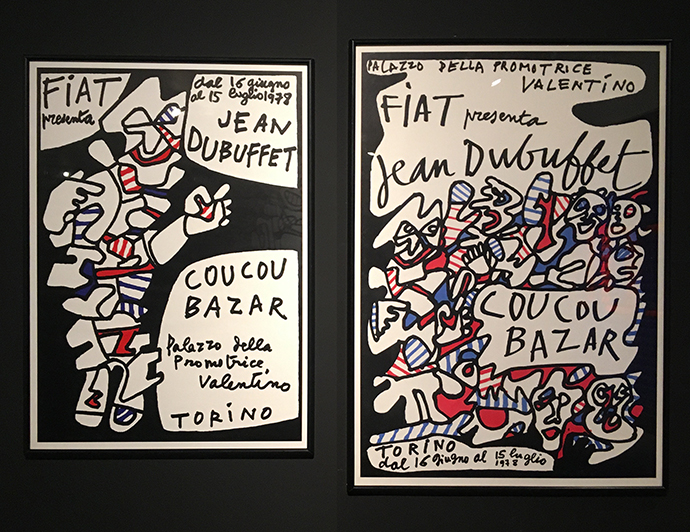 FiAT
presenta
dal 16 giugno
al 15 luglio 1978
JEAN
DUBUFFET
COUCOU
BAZAR
Palazzo della
Promotrice
Valentino
TORiNO
PALAZZO DELLA PROMOTRICE
VALENTiNO
FiAT presenta
Jean Dubuffet
COUCOU
BAZAR
TORiNO
dal 16 giugno al 15 luglio
1978